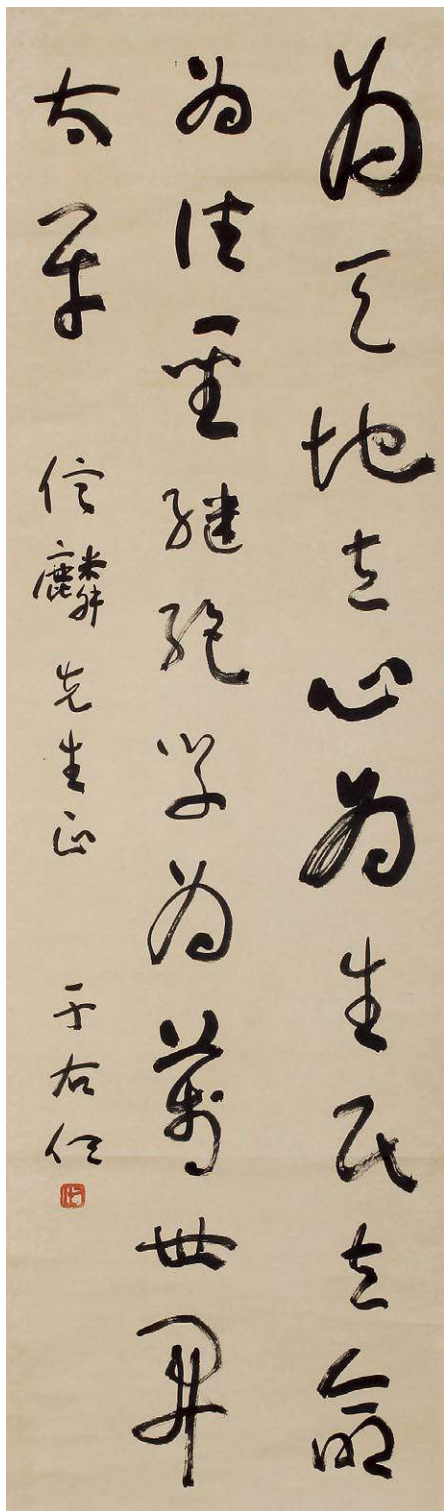 為天地立心為生民立命
為往聖繼絕學為萬世開
太平
信麟先生正
于右任